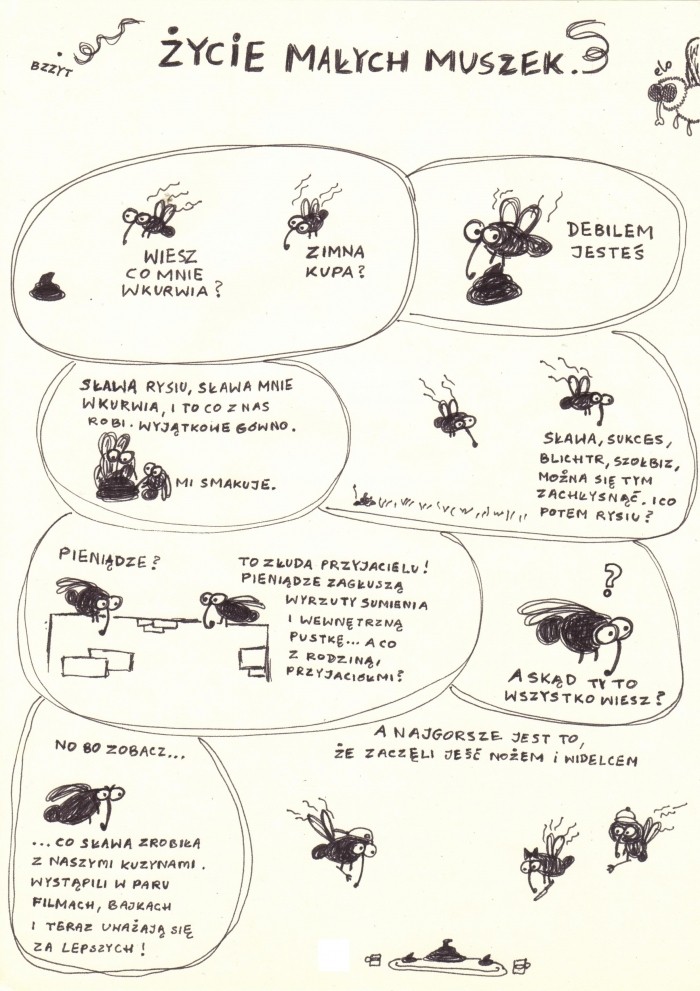 BZZYT
ŻYCIE MAŁYCH MUSZEK.
elo
WIESZ
CO MNIE
WKURWIA?
ZIMNA
KUPA?
DEBILEM
JESTEŚ
SŁAWA RYSIU, SŁAWA MNIE
WKURWIA, I TO CO Z NAS
ROBI. WYJĄTKOWE GÓWNO.
MI SMAKUJE.
SŁAWA, SUKCES,
BLICHTR, SZOŁBIZ,
MOŻNA SIĘ TYM
ZACHŁYSNĄĆ. I CO
POTEM RYSIU?
PIENIĄDZE?
TO ZŁUDA PRZYJACIELU!
PIENIĄDZE ZAGŁUSZĄ
WYRZUTY SUMIENIA
I WEWNĘTRZNĄ
PUSTKĘ... A CO
Z RODZINĄ,
PRZYJACIÓŁMI?
?
A SKĄD TY TO
WSZYSTKO WIESZ?
NO BO ZOBACZ...
...CO SŁAWA ZROBIŁA
Z NASZYMI KUZYNAMI.
WYSTĄPILI W PARU
FILMACH, BAJKACH
I TERAZ UWAŻAJĄ SIĘ
ZA LEPSZYCH!
A NAJGORSZE JEST TO,
ŻE ZACZĘLI JEŚĆ NOŻEM i WIDELCEM